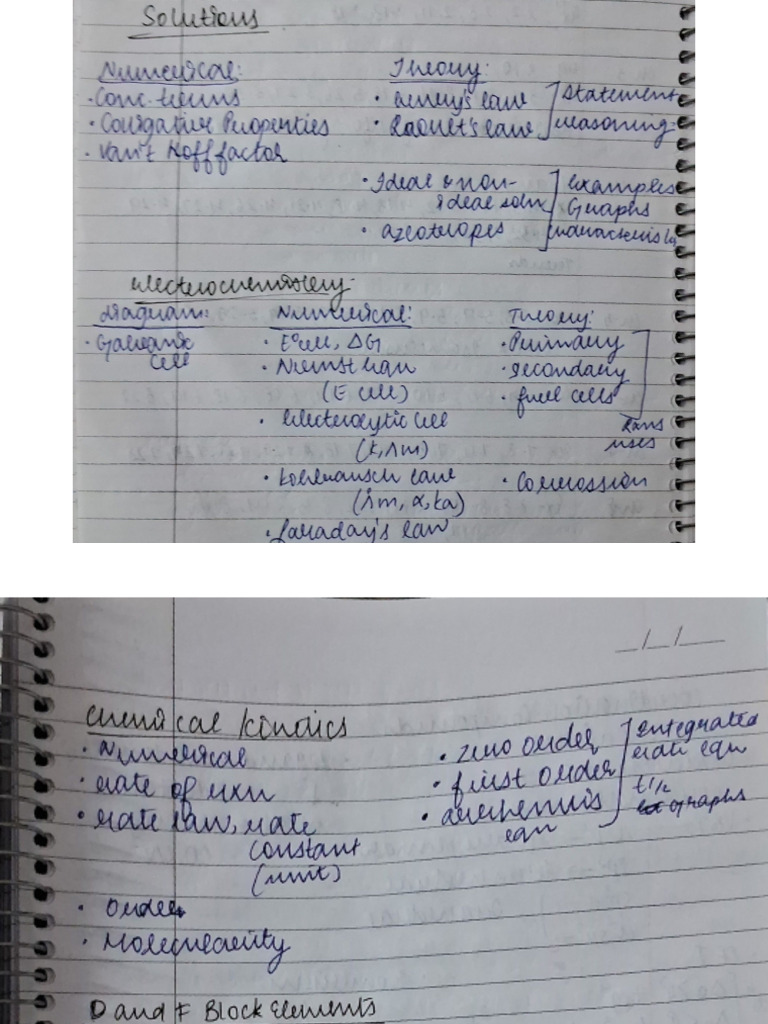 Solutions
Numerical:
• Conc. terms
• Colligative Properties
• Van't Hoff factor
Theory:
• Henry's law
• Raoult's law
Statement
reasoning
• Ideal & non-
ideal soln
• azeotropes
examples
Graphs
Electrochemistry
diagram:
• Galvanic
cell
Numerical:
• E°cell, ΔG
• Nernst eqn
(E cell)
• Electrolytic cell
(K, Λm)
• Kohlrausch law
(Λ̊m, α, ka)
• Faraday's law
Theory:
• Primary
• secondary
• fuel cells
rxns
uses
• Corrossion
_/_/_
Chemical Kinetics
• Numerical
• rate of rxn
• rate law, rate
constant
(unit)
• Order
• Molecularity
• zero order
• first order
• arrhenius
eqn
integrated
rate eqn
t1/2
graphs
D and F Block Elements